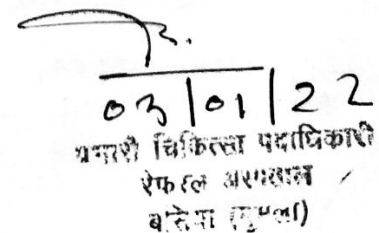 03/01/22
प्रभारी चिकित्सा पदाधिकारी
रेफरल अस्पताल